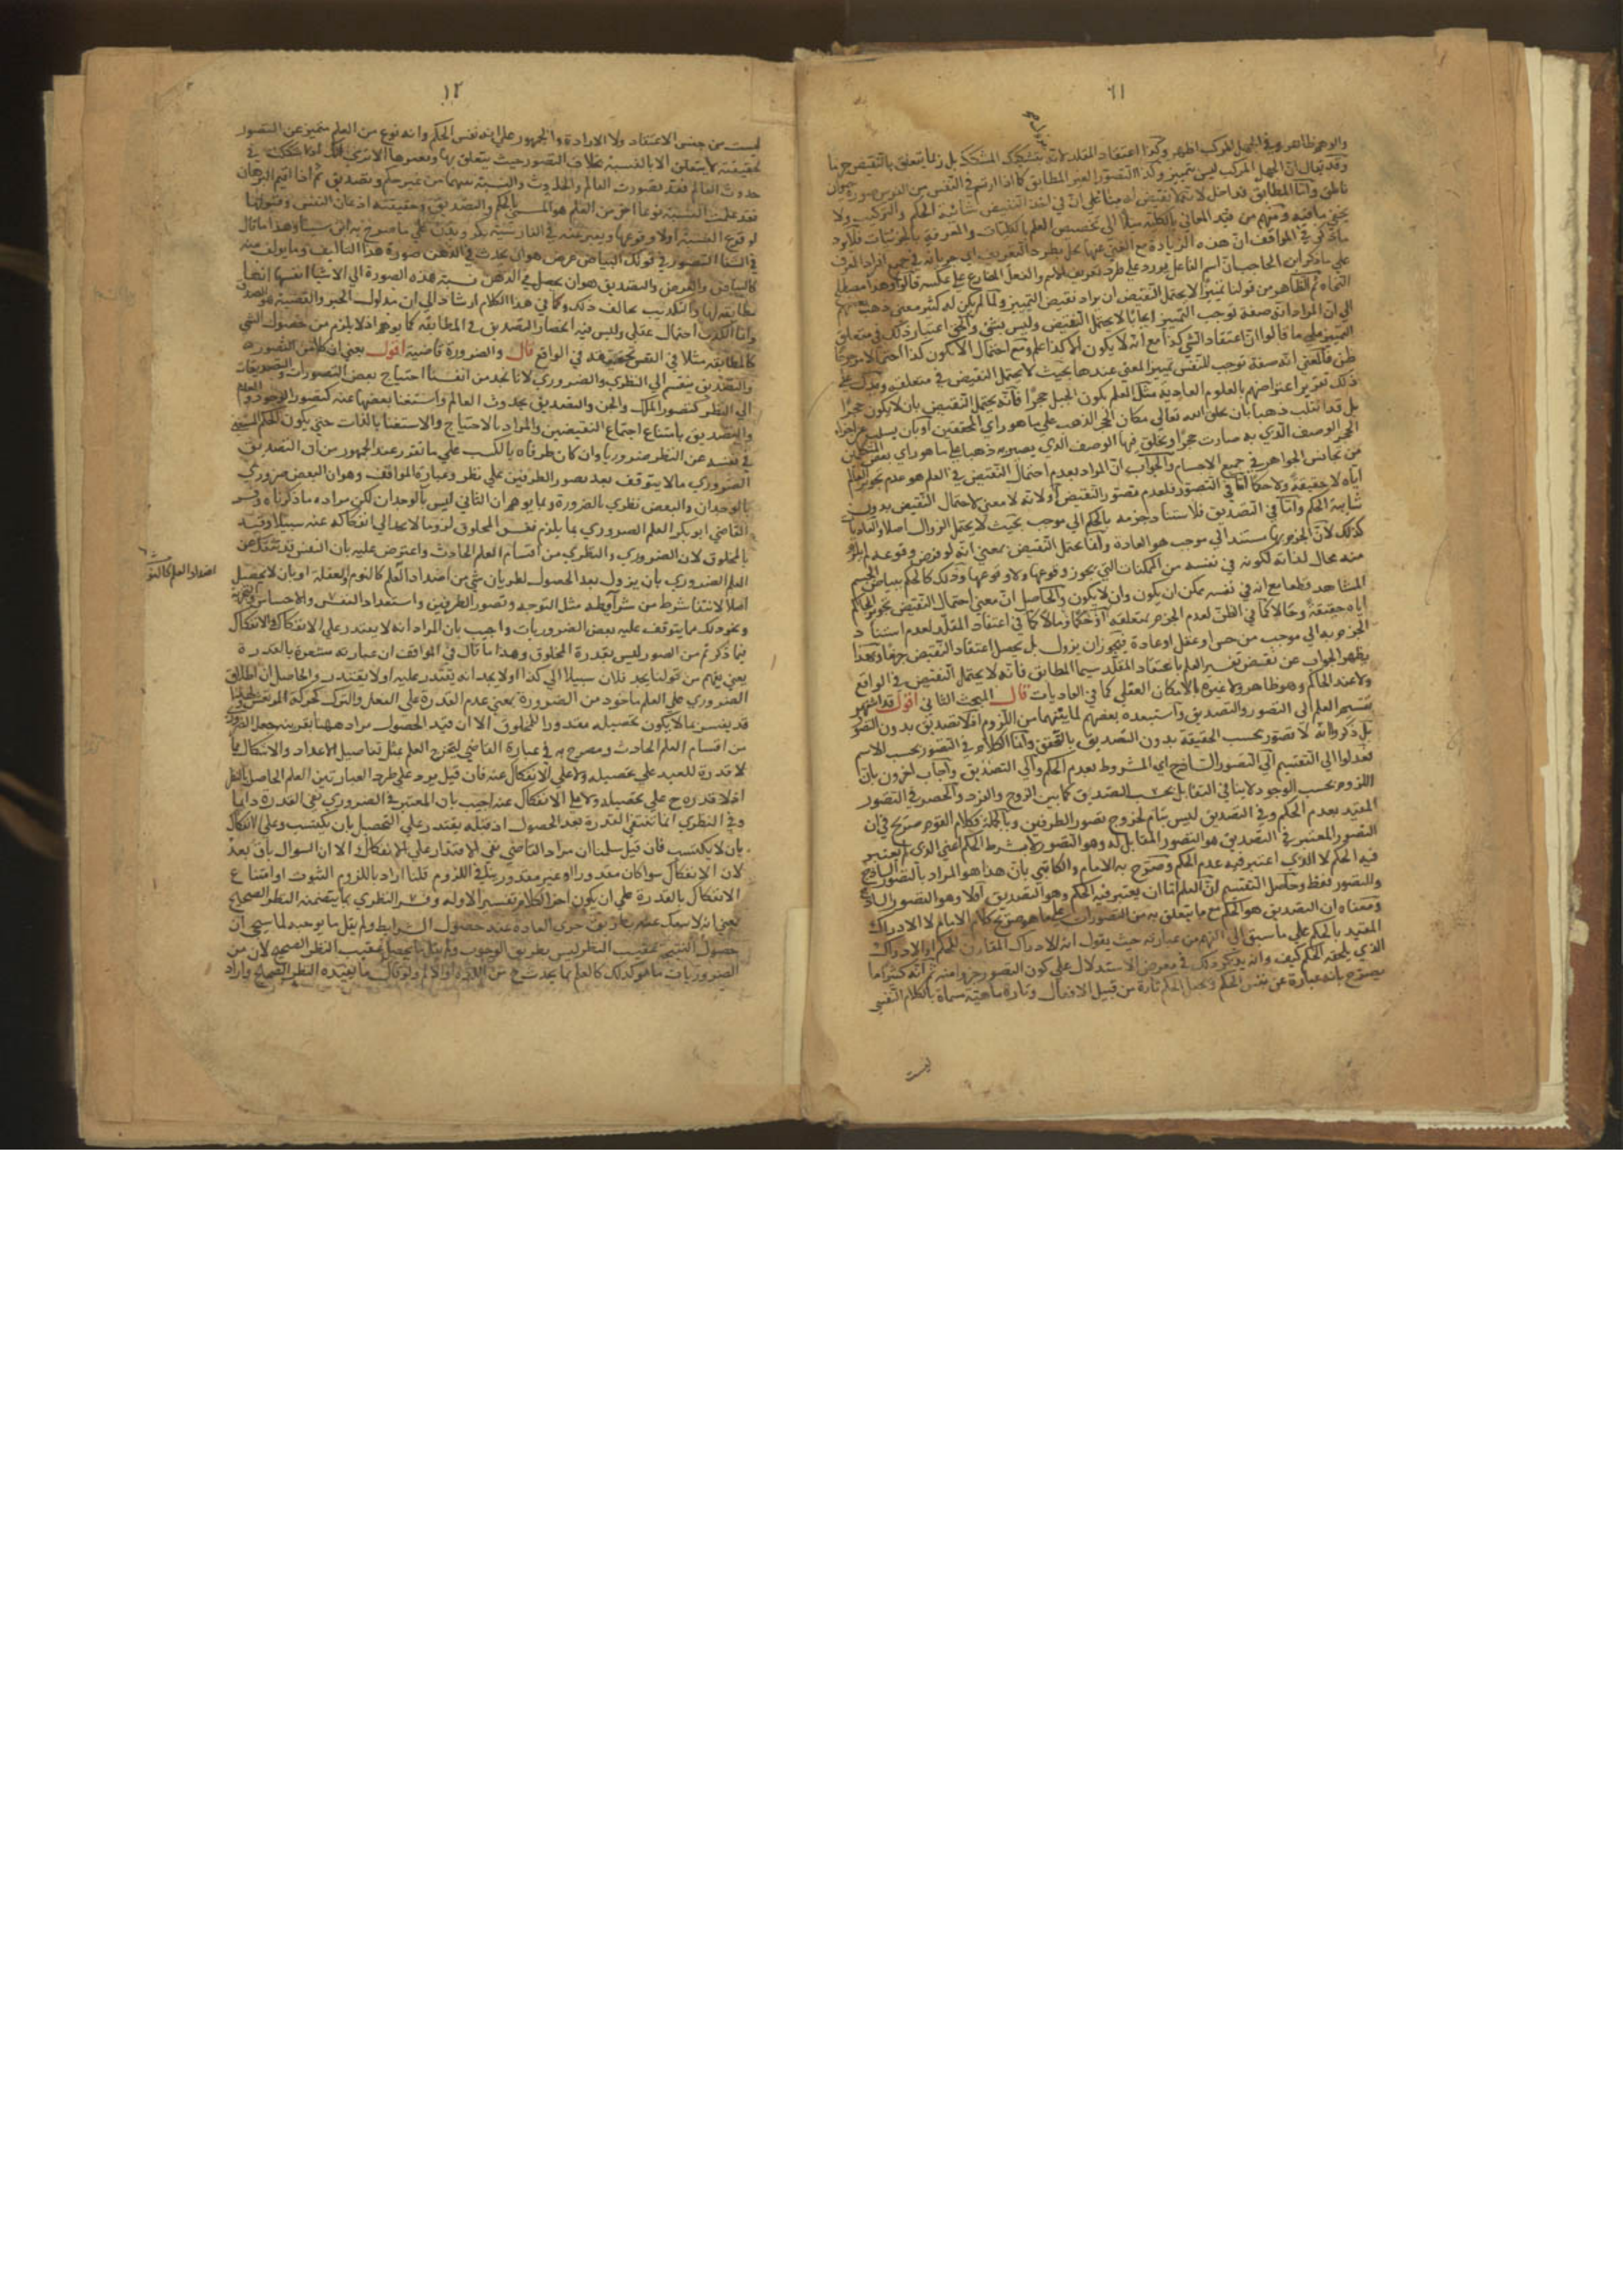 ١١
والوهم ظاهر وفي الجهل المركب اظهر وكذا اعتقاد المقلد لانه يتشكيك المشكك بل ربما يتعلق بالنقيض جزما
وقد يقال ان الجهل المركب ليس بتمييز وكذا التصور الغير المطابق كما اذا ارتسم في النفس من الفرس صورة حيوان
ناطق واما المطابق فداخل لانه لا نقيض له بناء على ان في اخذ النقيض شائبة الحكم والتركيب ولا
يخفى ما فيه ومنهم من قيد المعاني بالكلية ميلا الى تخصيص العلم بالكليات والمعرفة بالجزئيات فلا يرد
ما ذكر في المواقف ان هذه الزيادة مع الغنى عنها تخل بطرد التعريف اي جريانه في جميع افراد المعرف
على ما ذكر ابن الحاجب ان اسم الفاعل يورد على طرد تعريف الاسم والفعل المضارع على عكسه قالوا وهذا مصطلح
النحاة ثم الظاهر من قولنا تمييزا لا يحتمل النقيض ان يراد نقيض التمييز ولما لم يكن له كثير معنى ذهب بعضهم
الى ان المراد انه صفة توجب التمييز ايجابا لا يحتمل النقيض وليس بشيء والحق اعتبار ذلك في متعلق
التمييز على ما قالوا ان اعتقاد الشيء كذا مع انه لا يكون الا كذا علم ومع احتمال الا يكون كذا احتمالا مرجوحا
ظن فالمعنى انه صفة توجب للنفس تمييز المعنى عندها بحيث لا يحتمل النقيض في متعلقه ويدل على
ذلك تقرير اعتراضهم بالعلوم العادية مثل العلم بكون الجبل حجرا فانه يحتمل النقيض بان لا يكون حجرا
بل قد انقلب ذهبا بان يخلق الله تعالى مكان الحجر الذهب على ما هو راي المحققين او بان يسلب عن اجزاء
الحجر الوصف الذي به صارت حجرا ويخلق فيها الوصف الذي يصير به ذهبا على ما هو راي بعض المتكلمين
من تجانس الجواهر في جميع الاجسام والجواب ان المراد بعدم احتمال النقيض في العلم هو عدم تجويز العالم
اياه لا حقيقة ولا حكما اما في التصور فلعدم تصور النقيض او لانه لا معنى لاحتمال النقيض بدون
شائبة الحكم واما في التصديق فلاستناد جزمه بالحكم الى موجب بحيث لا يحتمل الزوال اصلا والعاديات
كذلك لان الجزم بها مستند الى موجب هو العادة وانما يحتمل النقيض بمعنى انه لو فرض وقوعه لم يلزم
منه محال لذاته لكونه في نفسه من الممكنات التي يجوز وقوعها ولا وقوعها وذلك كالحكم ببياض الجسم
المشاهد قطعا مع انه في نفسه ممكن ان يكون وان لا يكون والحاصل ان معنى احتمال النقيض تجويز الحاكم
اياه حقيقة وحالا كما في الظن لعدم الجزم بمتعلقه او حكما ومالا كما في اعتقاد المقلد لعدم استناد
الجزم به الى موجب من حس او عقل او عادة فيجوز ان يزول بل يحصل اعتقاد النقيض جزما وبهذا
يظهر الجواب عن نقض تفسير العلم باعتقاد المقلد سيما المطابق فانه لا يحتمل النقيض في الواقع
ولا عند الحاكم وهو ظاهر ولا عبرة بالامكان العقلي كما في العاديات قال المبحث الثاني اقول قد اشتهر
تقسيم العلم الى التصور والتصديق واستبعده بعضهم لما بينهما من اللزوم اذ لا تصديق بدون التصور
بل ذكروا انه لا تصور بحسب الحقيقة بدون التصديق بالتحقق وانما الكلام في التصور بحسب الاسم
فعدلوا الى التقسيم الى التصور الساذج اي المشروط بعدم الحكم والى التصديق واجاب اخرون بان
اللزوم بحسب الوجود لا ينافي التقابل بحسب الصدق كما بين الزوج والفرد والحصر في التصور
المقيد بعدم الحكم وفي التصديق ليس بتام لخروج تصور الطرفين وبالجملة فكلام القوم صريح في ان
التصور المعتبر في التصديق هو التصور المقابل له وهو التصور لا بشرط الحكم اعني الذي لم يعتبر
فيه الحكم لا الذي اعتبر فيه عدم الحكم وصرح به الامام والكاتبي بان هذا هو المراد بالتصور الساذج
والتصور فقط وحاصل التقسيم ان العلم اما ان يعتبر فيه الحكم وهو التصديق اولا وهو التصور
ومعناه ان التصديق هو الحكم مع ما يتعلق به من التصورات على ما هو صريح كلام الامام لا الادراك
المقيد بالحكم على ما سبق الى الفهم من عبارته حيث يقول انه الادراك المقارن للحكم او الادراك
الذي يلحقه الحكم كيف وانه يذكر ذلك في معرض الاستدلال على كون التصور جزوا منه ثم انه كثيرا ما
يصرح بانه عبارة عن نفس الحكم ويجعل الحكم تارة من قبيل الافعال وتارة ماهية مسماة بالكلام النفسي
ليست
١٢
ليست من جنس الاعتقاد ولا الارادة والجمهور على انه نفس الحكم وانه نوع من العلم متميز عن التصور
بحقيقته لا يتعلق الا بالنسبة بخلاف التصور حيث يتعلق بها وبغيرها الا ترى انك اذا شككت في
حدوث العالم فقد تصورت العالم والحدوث والنسبة بينهما من غير حكم وتصديق ثم اذا اقيم البرهان
فقد علمت النسبة نوعا اخر من العلم هو المسمى بالحكم والتصديق وحقيقته اذعان النفس وقبولها
لوقوع النسبة اولا وقوعها ويعبر عنه في الفارسية بكرويدن على ما صرح به ابن سينا وهذا ما قال
في الشفا التصور في قولك البياض عرض هو ان يحدث في الذهن صورة هذا التاليف وما يؤلف منه
كالبياض والعرض والتصديق هو ان يحصل في الذهن نسبة هذه الصورة الى الاشيا انفسها انها
مطابقة لها والتكذيب يخالف ذلك وكما في هذا الكلام ارشاد الى ان مدلول الخبر والقضية هو الصدق
وانما الكذب احتمال عقلي وليس فيه انحصار التصديق في المطابقة كما يوهم اذ لا يلزم من حصول الشي
كالمطابقة مثلا في النفس تحققه في الواقع قال والضرورة قاضية اقول يعني ان كلا من التصور
والتصديق ينقسم الى النظري والضروري لانا نجد من انفسنا احتياج بعض التصورات والتصديقات
الى النظر كتصور الملك والجن والتصديق بحدوث العالم واستغنا بعضها عنه كتصور الوجود والعدم
والتصديق بامتناع اجتماع النقيضين والمراد بالاحتياج والاستغنا بالذات حتى يكون الحكم المستغنى
في نفسه عن النظر ضروريا وان كان طرفاه بالكسب على ما تقرر عند الجمهور من ان التصديق
الضروري ما لا يتوقف بعد تصور الطرفين على نظر وعبارة المواقف وهو ان البعض ضروري
بالوجدان والبعض نظري بالضرورة وبما يوهم ان الثاني ليس بالوجدان لكن مراده ما ذكرناه وفسر
القاضي ابو بكر العلم الضروري بما يلزم نفس المخلوق لزوما لا يجد الى انفكاكه عنه سبيلا وقيد
بالمخلوق لان الضروري والنظري من اقسام العلم الحادث واعترض عليه بان النفس قد تنفك عن
العلم الضروري بان يزول بعد الحصول لطريان شي من اضداد العلم كالنوم والغفلة او بان لا يحصل
اصلا لانتفا شرط من شرائطه مثل التوجه وتصور الطرفين واستعداد النفس والاحساس والتجربة
ونحو ذلك مما يتوقف عليه بعض الضروريات واجيب بان المراد انه لا يقتدر على الانفكاك والانفكاك
فيما ذكرتم من الصور ليس بقدرة المخلوق وهذا ما قال في المواقف ان عبارته مشعرة بالقدرة
يعني يفهم من قولنا يجد فلان سبيلا الى كذا اولا يجد انه يقتدر عليه اولا يقتدر والحاصل ان اطلاق
الضروري على العلم ماخوذ من الضرورة بمعنى عدم القدرة على الفعل والترك كحركة المرتعش
قد يفسر بما لا يكون تحصيله مقدورا للمخلوق الا ان قيد الحصول مراد ههنا بقرينة جعل الضروري
من اقسام العلم الحادث ومصرح به في عبارة القاضي ليخرج العلم بمثل تفاصيل الاعداد والاشكال مما
لا قدرة للعبد على تحصيله ولا على الانفكاك عنه فان قيل يرد على طرد العبارتين العلم الحاصل بالنظر
اذ لا قدرة ح على تحصيله ولا على الانفكاك عنه اجيب بان المعتبر في الضروري نفي القدرة دايما
وفي النظري انما تنتفي القدرة بعد الحصول اذ قبله يقتدر على التحصيل بان يكتسب وعلى الانفكاك
بان لا يكتسب فان قيل سلمنا ان مراد القاضي نفي الاقتدار على الانفكاك الا ان السؤال باق بعد
لان الانفكاك سوا كان مقدورا او غير مقدور ينافي اللزوم قلنا اراد باللزوم الثبوت او امتناع
الانفكاك بالقدرة على ان يكون اخر الكلام تفسير الاوله وفسر النظري بما يتضمنه النظر الصحيح
يعني انه لا ينفك عنه بطريق جري العادة عند حصول الشرايط ولم يقل ما يوجبه لما سيجي ان
حصول النتيجة عقيب النظر ليس بطريق الوجوب ولم يقل ما يحصل عقيب النظر الصحيح لان من
الضروريات ما هو كذلك كالعلم بما يحدث ح من اللذة والالم ولو قال ما يفيده النظر الصحيح واراد
اضداد العلم كالنوم